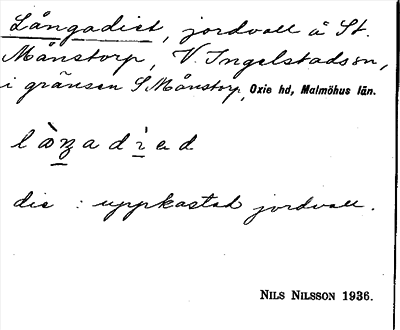 Långadiet, jordvall å St.
Månstorp, V. Ingelstads sn,
i gränsen S Månstorp, Oxie hd, Malmöhus län.
die : uppkastad jordvall.
NILS NILSSON 1936.